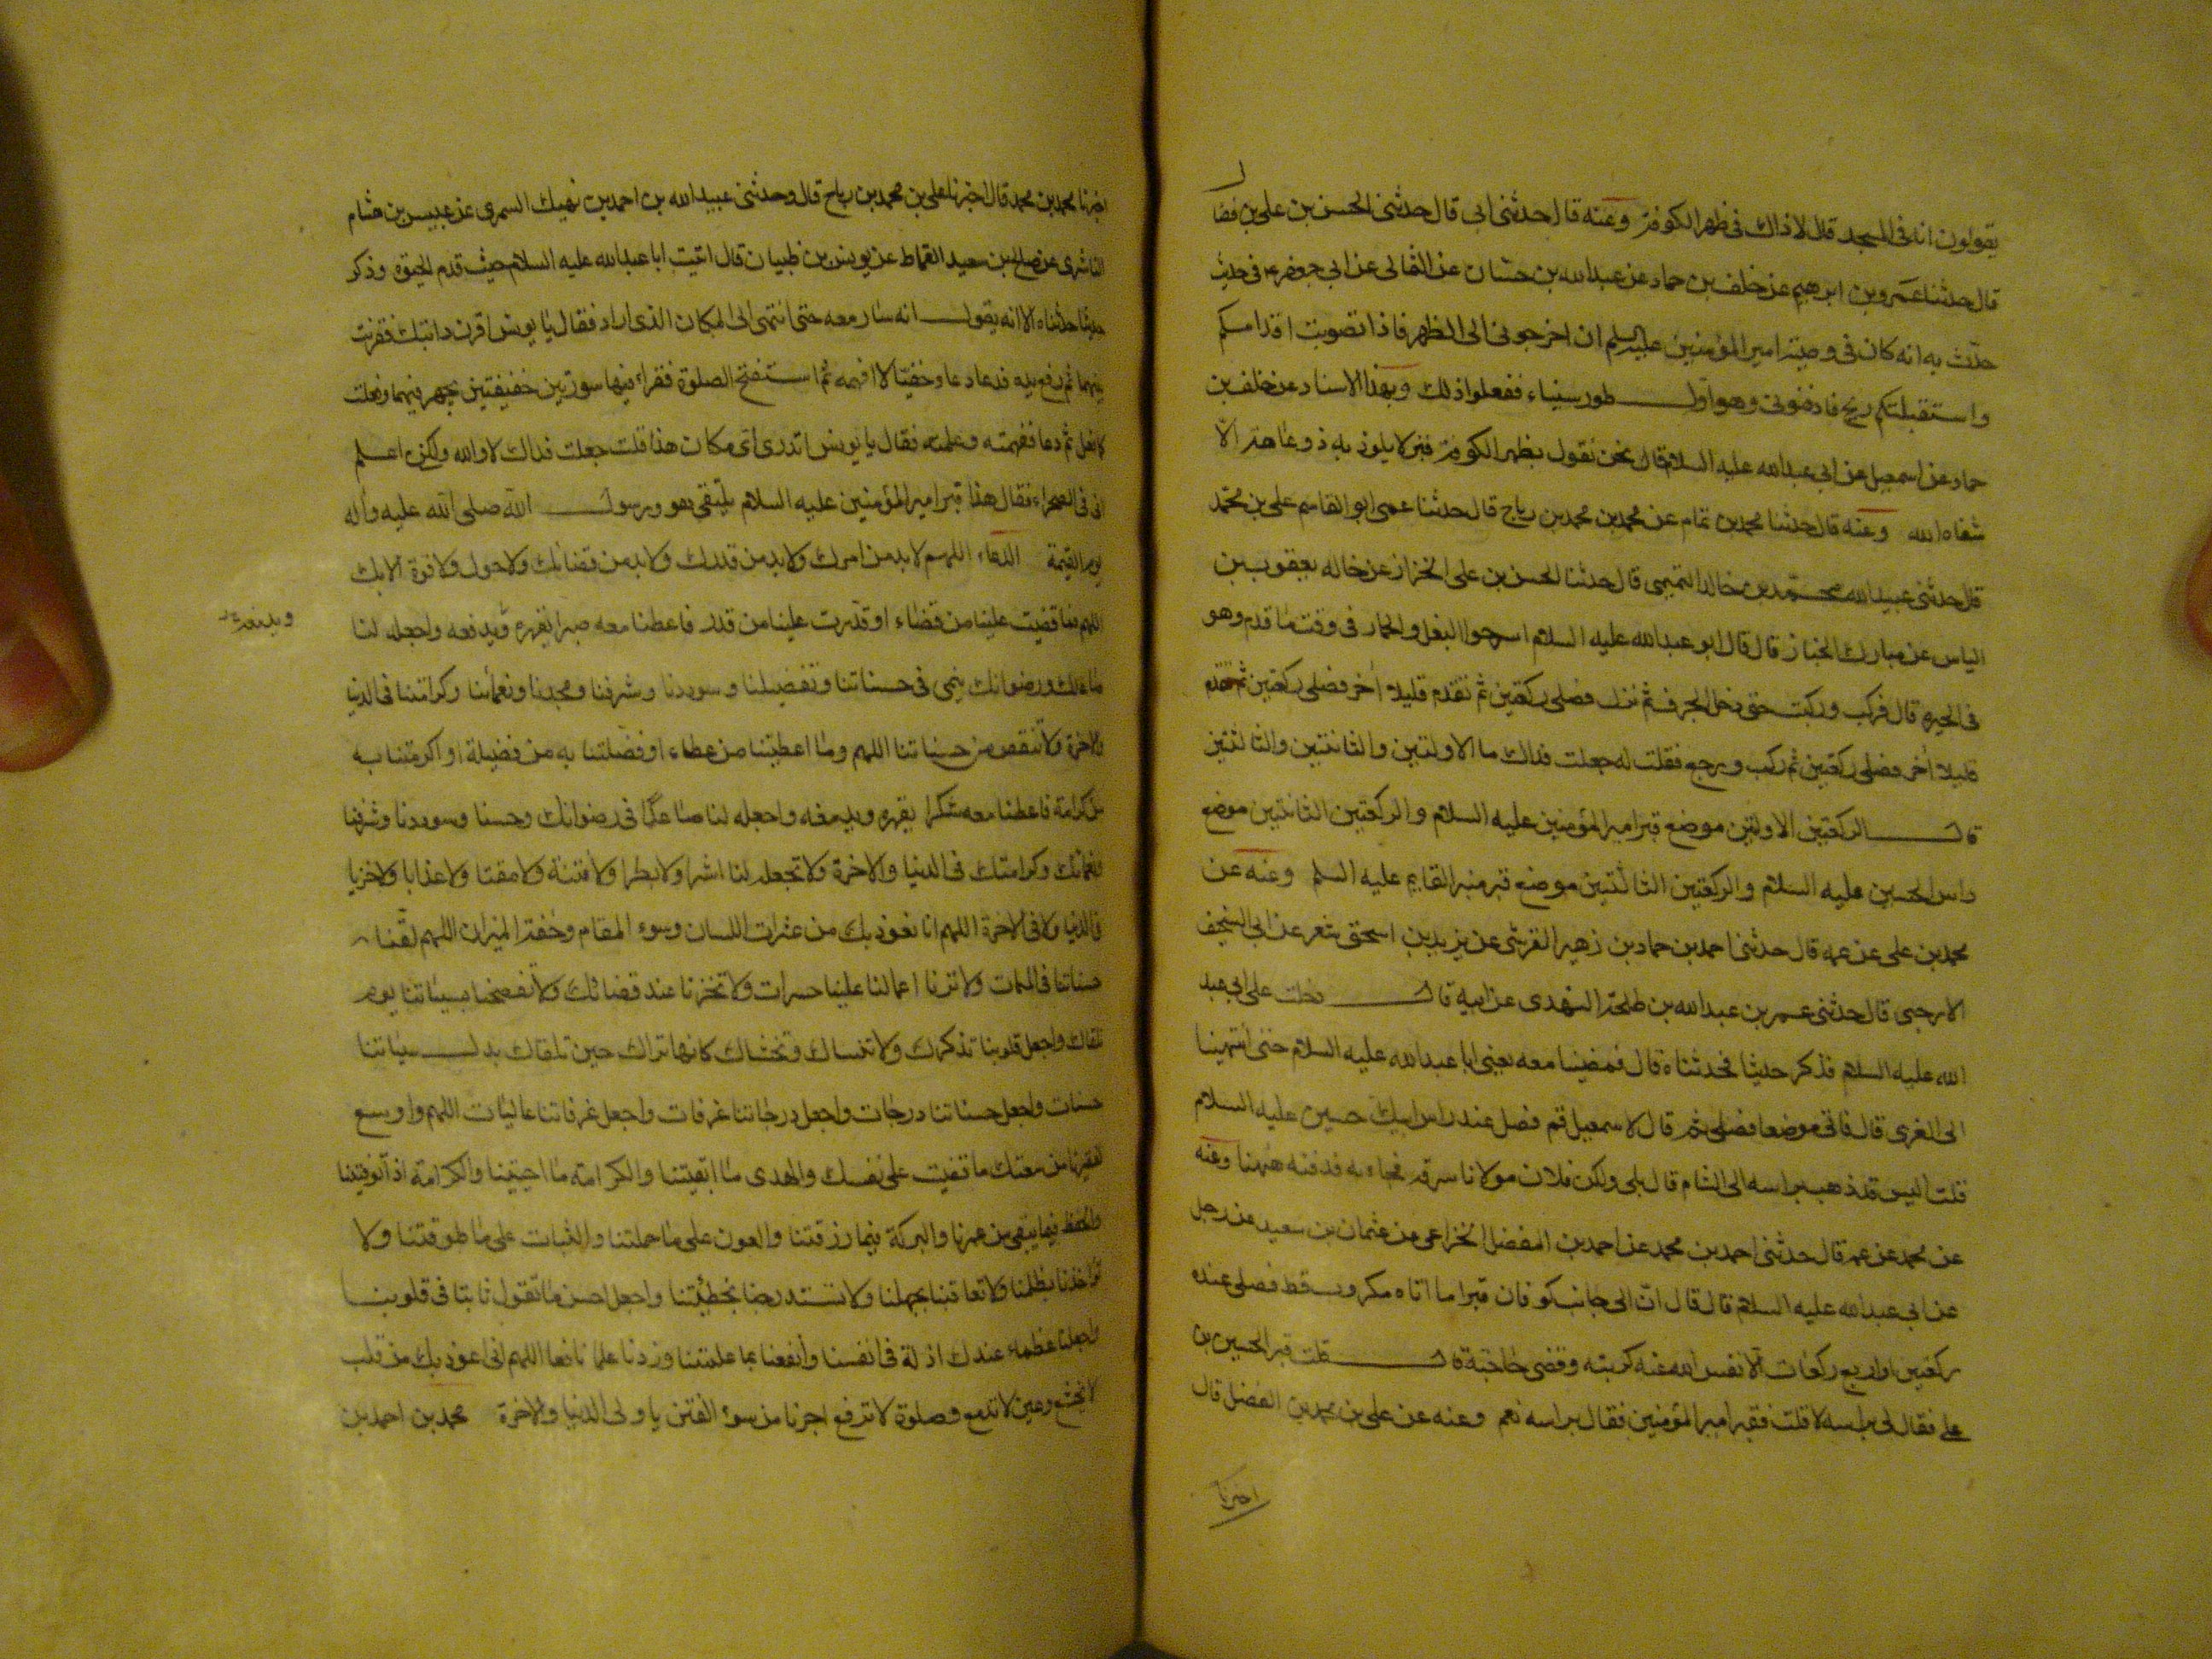 يقولون انه فى المسجد قال لا ذاك فى ظهر الكوفة وعنه قال حدثنى ابى قال حدثنى الحسن بن على بن فضا
ل
قال حدثنا عمرو بن ابرهيم عن خلف بن حماد عن عبدالله بن حسان عن الثمالى عن ابى جعفر ع فى حديث
حدث به انه كان فى وصية امير المؤمنين عليه السلم ان اخرجونى الى الظهر فاذا تصوبت اقدامكم
واستقبلتكم ريح فادفنونى وهو اول طور سيناء ففعلوا ذلك وبهذا الاسناد عن خلف بن
حماد عن اسمعيل عن ابى عبدالله عليه السلام قال نحن نقول بظهر الكوفة قبر لا يلوذ به ذو عاهة الا
شفاه الله وعنه قال حدثنا محمد بن تمام عن محمد بن محمد بن رباح قال حدثنا عمى ابو القاسم على بن محمد
قال حدثنى عبيد الله محمد بن خالد التميمى قال حدثنا الحسن بن على الخزاز عن خاله يعقوب بن
الياس عن مبارك الخباز قال قال ابو عبدالله عليه السلام اسرجوا البغل والحمار فى وقت ما قدم وهو
فى الحيرة قال فركب وركبت حتى دخل الجرف ثم نزل فصلى ركعتين ثم تقدم قليلا اخر فصلى ركعتين ثم تقدم
قليلا اخر فصلى ركعتين ثم ركب ورجع فقلت له جعلت فداك ما الاولتين والثانتين والثالثتين
قال الركعتين الاولتين موضع قبر امير المؤمنين عليه السلام والركعتين الثانتين موضع
راس الحسين عليه السلام والركعتين الثالثتين موضع منبر القايم عليه السلم وعنه عن
محمد بن على عن عمه قال حدثنى احمد بن حماد بن زهير القرشى عن يزيد بن اسحق شعر عن ابى السخيف
الارجبى قال حدثنى عمر بن عبدالله بن طلحة النهدى عن ابيه قال دخلت على ابى عبد
الله عليه السلام فذكر حديثا فحدثناه قال فمضينا معه يعنى ابا عبدالله عليه السلام حتى انتهينا
الى الغرى قال فاتى موضعا فصلى ثم قال لاسمعيل قم فصل عند راس ابيك حسين عليه السلام
قلت اليس قد ذهب براسه الى الشام قال بلى ولكن فلان مولانا سرقه فجاء به فدفنه ههنا وعنه
عن محمد عن عمه قال حدثنى احمد بن محمد عن احمد بن المفضل الخزاعى عن عثمان بن سعيد عن رجل
عن ابى عبدالله عليه السلام قال قال ان الى جانب كوفان قبرا ما اتاه مكروب قط فصلى عنده
ركعتين او اربع ركعات الا نفس الله عنه كربته وقضى حاجته قال قلت قبر الحسين بن
على فقال لى براسه لا قلت فقبر امير المؤمنين فقال براسه نعم وعنه عن على بن محمد بن الفضل قال
اخبرنا
اخبرنا محمد بن محمد قال اخبرنا على بن محمد بن رباح قال وحدثنى عبيد الله بن احمد بن نهيك السمرى عن عبيس بن هشام
الناشرى عن صالح بن سعيد القماط عن يونس بن ظبيان قال اتيت ابا عبدالله عليه السلام حيث قدم الحيرة وذكر
حديثا حدثناه الا انه يقول انه سار معه حتى انتهى الى المكان الذى اراد فقال يا يونس اقرن دابتك فقرنت
بينهما ثم رفع يده فدعا دعاء خفيا لا افهمه ثم استفتح الصلوة فقراء فيها سورتين خفيفتين يجهر فيهما وفعلت
كما فعل ثم دعا ففهمته وعلمته فقال يا يونس اتدرى اى مكان هذا قلت جعلت فداك لا والله ولكنى اعلم
انى فى الصحراء فقال هذا قبر امير المؤمنين عليه السلام يلتقى هو ورسول الله صلى الله عليه واله
يوم القيمة الدعاء اللهم لا بد من امرك ولا بد من قدرك ولا بد من قضائك ولا حول ولا قوة الا بك
اللهم فما قضيت علينا من قضاء او قدرت علينا من قدر فاعطنا معه صبرا يقهره ويدفعه واجعله لنا
ويدمغه
صاعدا فى رضوانك ينمى فى حسناتنا وتفضيلنا وسوددنا وشرفنا ومجدنا ونعمائنا وكرامتنا فى الدنيا
والاخرة ولا تنقص من حسناتنا اللهم وما اعطيتنا من عطاء او فضلتنا به من فضيلة او اكرمتنا به
من كرامة فاعطنا معه شكرا يقهره ويدمغه واجعله لنا صاعدا فى رضوانك وحسنا وسوددنا وشرفنا
ونعمائك وكرامتك فى الدنيا والاخرة ولا تجعله لنا اشرا ولا بطرا ولا فتنة ولا مقتا ولا عذابا ولا خزيا
فى الدنيا ولا فى الاخرة اللهم انا نعوذ بك من عثرات اللسان وسوء المقام وخفة الميزان اللهم لقنا
حسناتنا فى الممات ولا ترنا اعمالنا علينا حسرات ولا تخزنا عند قضائك ولا تفضحنا بسيئاتنا يوم
نلقاك واجعل قلوبنا تذكرك ولا تنساك وتخشاك كانها تراك حين تلقاك بدل سيئاتنا
حسنات واجعل حسناتنا درجات واجعل درجاتنا غرفات واجعل غرفاتنا عاليات اللهم واوسع
لفقيرنا من سعتك ما قضيت على نفسك والهدى ما ابقيتنا والكرامة ما احييتنا والكرامة اذا توفيتنا
والحفظ فيما يبقى من عمرنا والبركة فيما رزقتنا والعون على ما حملتنا والثبات على ما طوقتنا ولا
تؤاخذنا بظلمنا ولا تعاقبنا بجهلنا ولا تستدرجنا بخطيئتنا واجعل احسن ما نقول ثابتا فى قلوبنا
واجعلنا عظماء عندك اذلة فى انفسنا وانفعنا بما علمتنا وزدنا علما نافعا اللهم انى اعوذ بك من قلب
لا يخشع وعين لا تدمع وصلوة لا ترفع اجرنا من سوء الفتن يا ولى الدنيا والاخرة محمد بن احمد بن